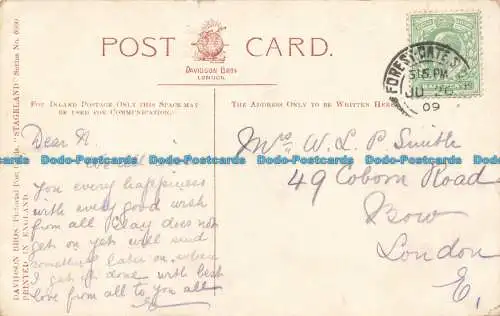 POST CARD.
DAVIDSON BROS.
LONDON.
FOR INLAND POSTAGE ONLY THIS SPACE MAY
BE USED FOR COMMUNICATION.
THE ADDRESS ONLY TO BE WRITTEN HERE.
DAVIDSON BROS.' Pictorial Post Cards. "STAGELAND" Series No.
PRINTED IN ENGLAND.
FOREST GATE
5.15 PM
JU
09
Dear A.
we all
You every happiness
with every good wish
from all Play does not
get on yet will send
something later on, when
I get it done with best
love from all to you all
Mrs W. L. P. Smith
49 Coborn Road
Bow
London
E.
Dodo-Postcards Dodo-Postcards Dodo-Postcards Dodo-Postcards